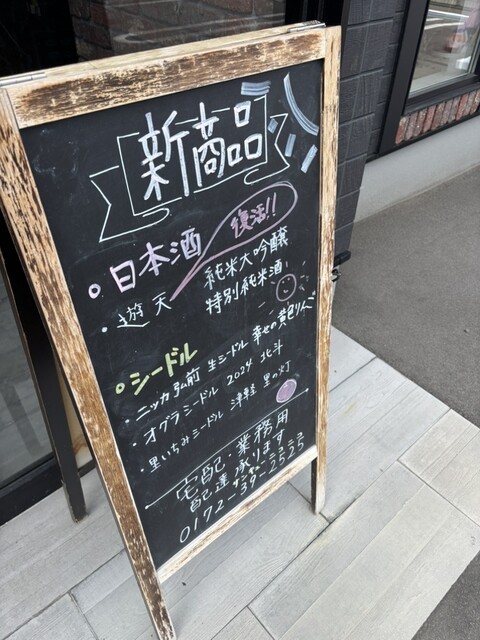 新商品
復活!!
・日本酒
・遊天 純米大吟醸
特別純米酒
・シードル
・ニッカ弘前 生シードル 幸せの黄色りんご
・オグラシードル 2024 北斗
・里いちみシードル 津軽 里の灯
宅配・業務用
配達承ります
サンキューニコニコ
0172-39-2525